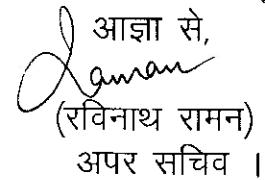 आज्ञा से,
Raman
(रविनाथ रामन)
अपर सचिव ।